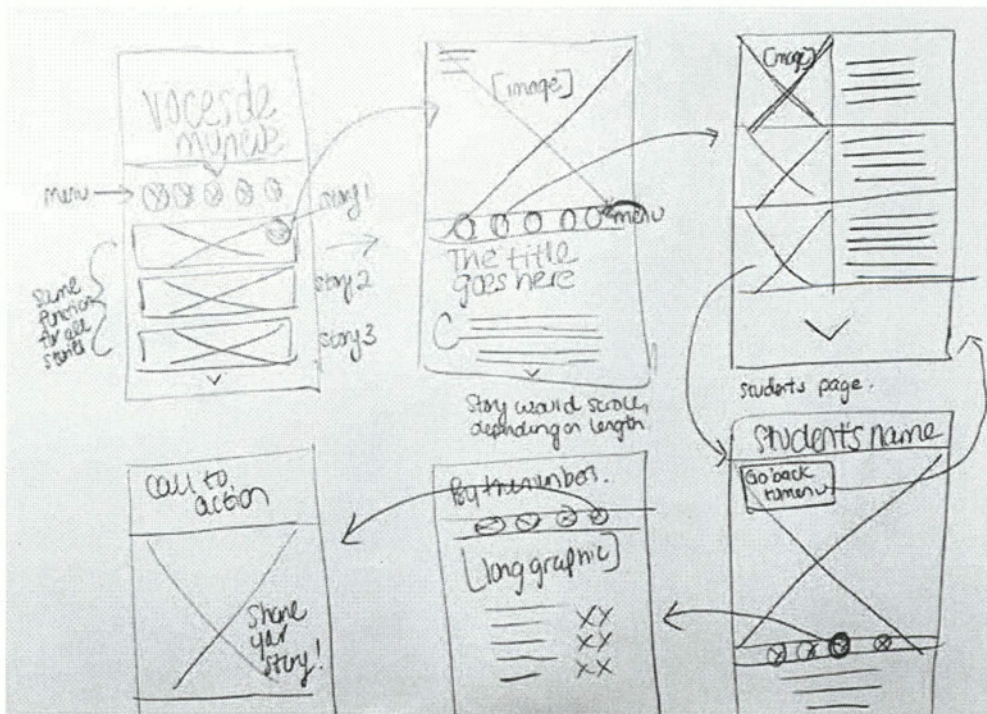 vocesde
menu
story 1
story 2
story 3
same
function
for all
stories
[image]
menu
The title
goes here
Story would scroll,
depending on length.
[image]
students page.
student's name
Go back
to menu
By the numbers.
[long graphic]
XX
XX
XX
call to
action
Share
your
story!